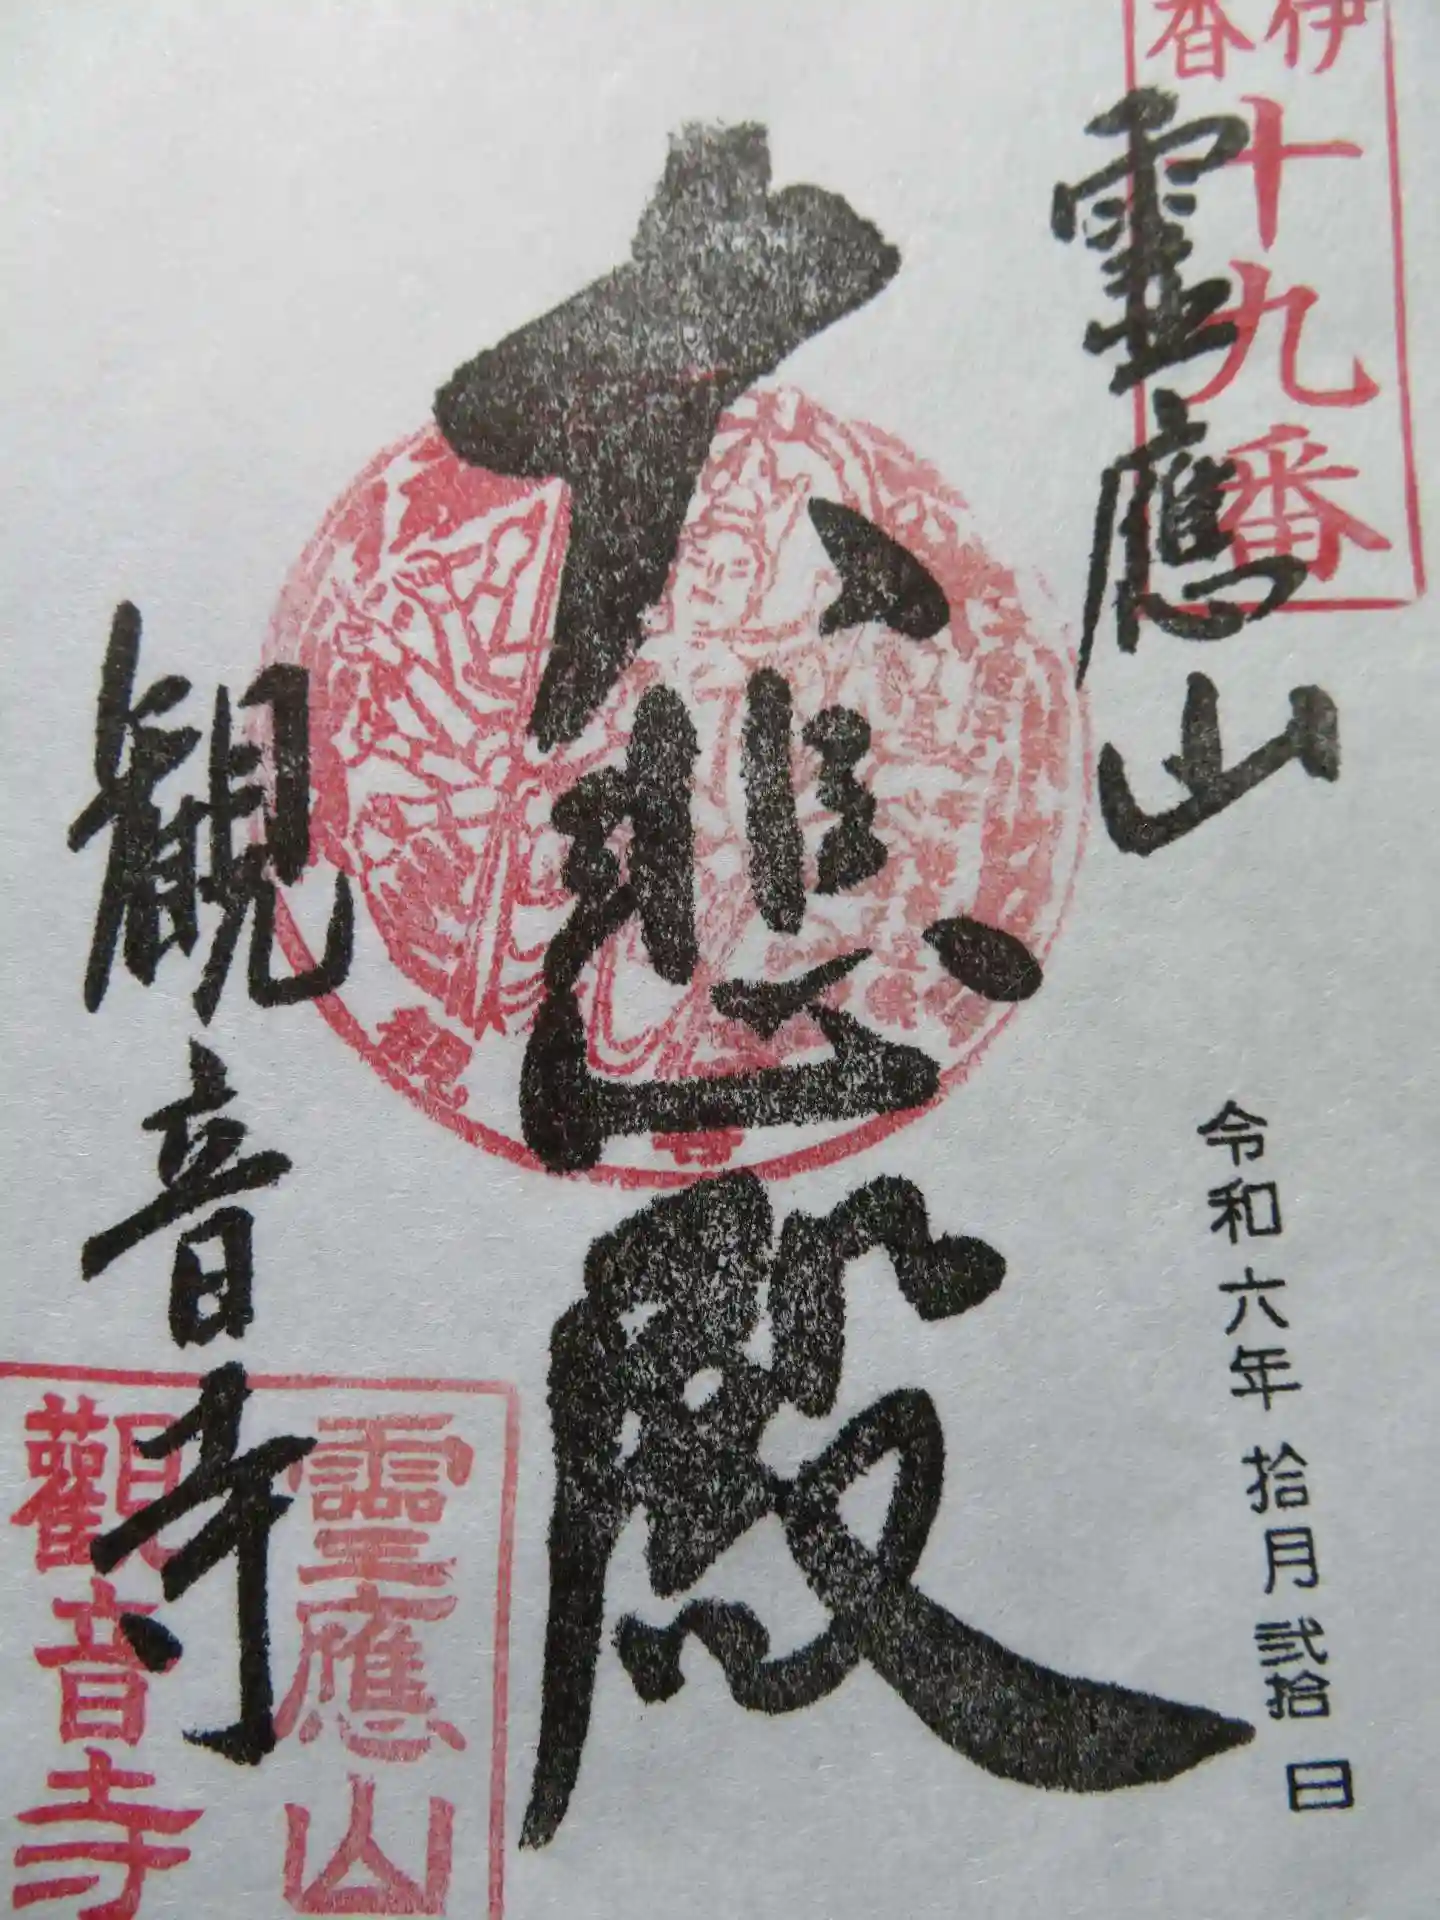 伊
香
十九番
靈應山
大悲殿
令和六年拾月弐拾日
観音寺
靈應山
觀音寺